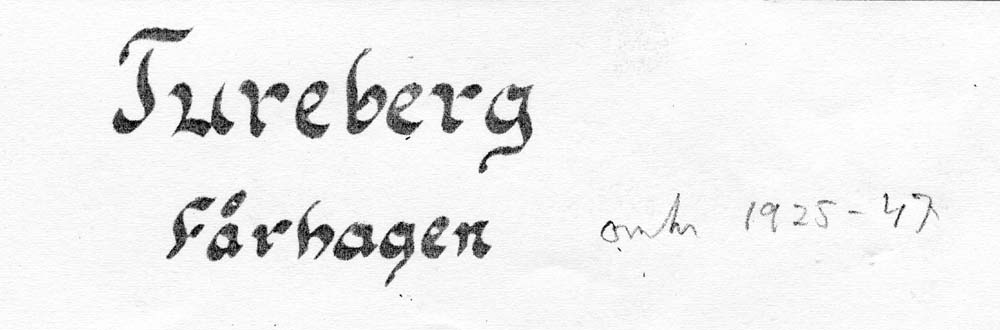 Tureberg
Fårhagen 1925-47